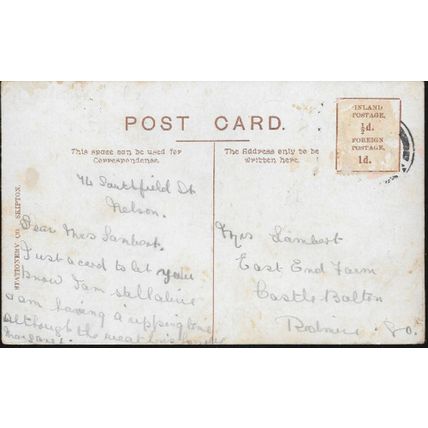 POST CARD.
This space can be used for
Correspondence.
The Address only to be
written here.
INLAND
POSTAGE,
½d.
FOREIGN
POSTAGE,
1d.
STATIONERY CO. SKIPTON.
74 Southfield St
Nelson.
Dear Mrs Lambert.
Just a card to let you
know I am still alive
I am having a ripping time
Although the weather is
Margaret.
Mrs Lambert
East End Farm
Castle Bolton
Redmire S.O.